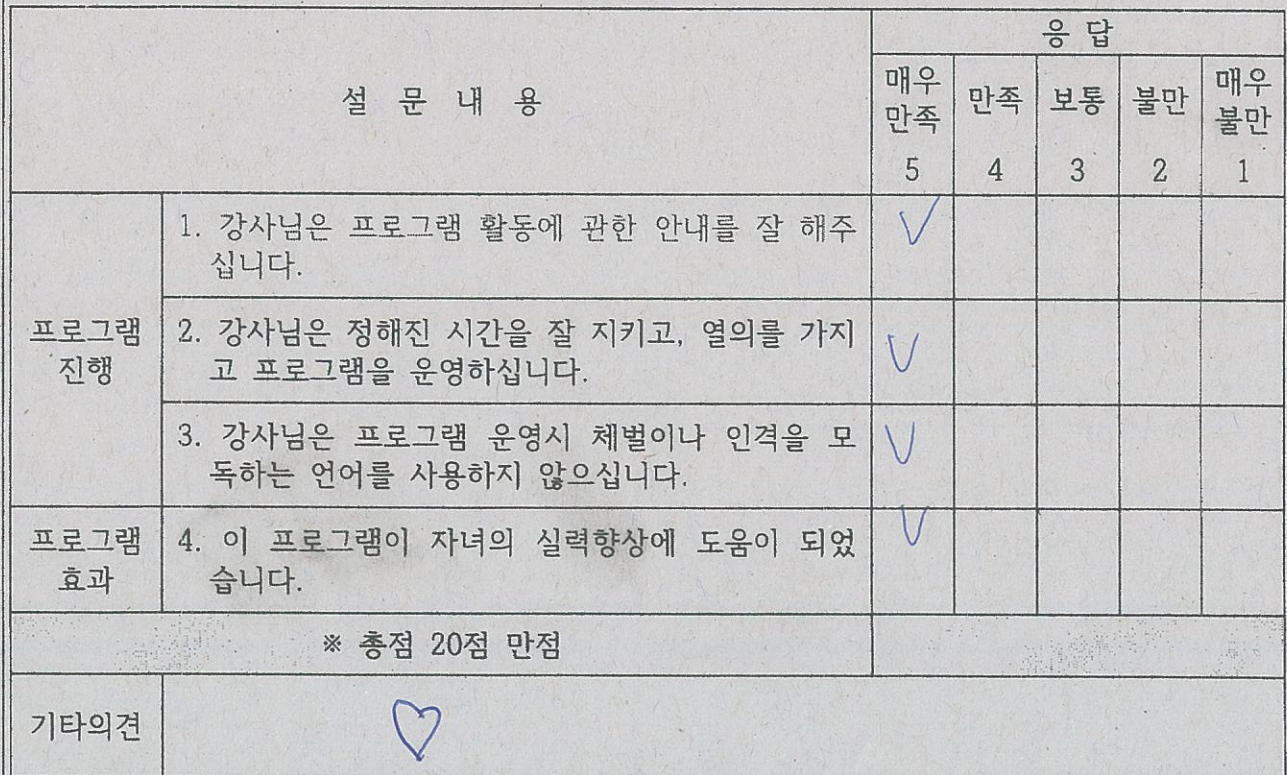 설 문 내 용
응 답
매우
만족
5
만족
4
보통
3
불만
2
매우
불만
1
프로그램
진행
1. 강사님은 프로그램 활동에 관한 안내를 잘 해주
십니다.
2. 강사님은 정해진 시간을 잘 지키고, 열의를 가지
고 프로그램을 운영하십니다.
3. 강사님은 프로그램 운영시 체벌이나 인격을 모
독하는 언어를 사용하지 않으십니다.
프로그램
효과
4. 이 프로그램이 자녀의 실력향상에 도움이 되었
습니다.
※ 총점 20점 만점
기타의견
♡